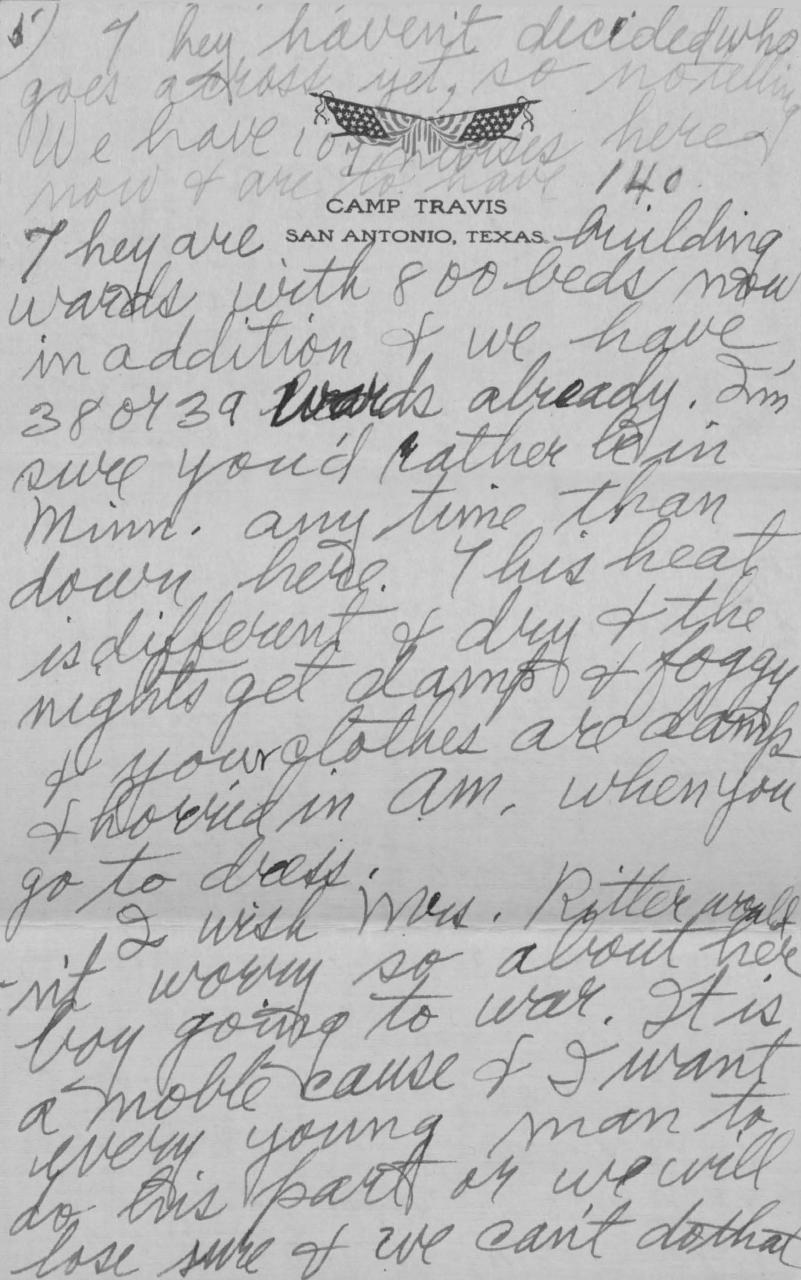 5) They haven't decided who
goes across yet, so no telling
We have 107 nurses here
now & are to have 140.
CAMP TRAVIS
SAN ANTONIO, TEXAS.
They are building
wards with 800 beds now
in addition & we have
38 or 39 wards already. I'm
sure you'd rather be in
Minn. any time than
down here. This heat
is different & dry & the
nights get damp & foggy
& your clothes are damp
& horrid in am. when you
go to dress.
I wish Mrs. Ritter would
-n't worry so about her
boy going to war. It is
a noble cause & I want
every young man to
do his part or we will
lose sure & we can't do that